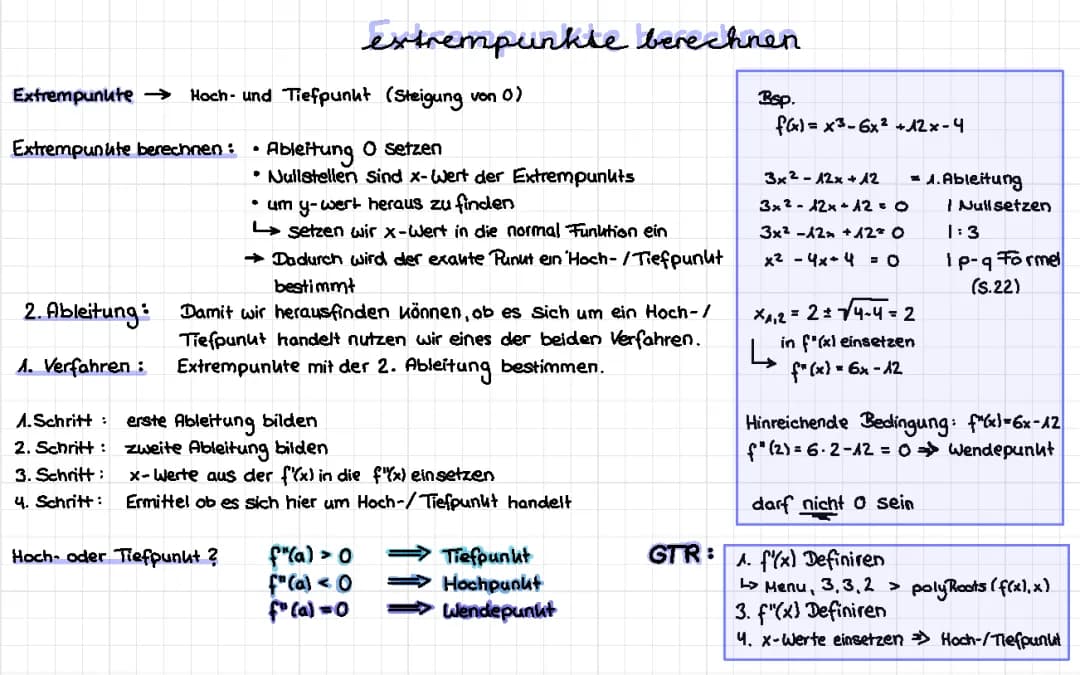 extrempunkte berechnen
Extrempunkte → Hoch- und Tiefpunkt (Steigung von 0)
Extrempunkte berechnen: • Ableitung 0 setzen
• Nullstellen sind x-Wert der Extrempunkts
• um y-wert heraus zu finden
↳ setzen wir x-Wert in die normal Funktion ein
→ Dadurch wird der exakte Punkt ein Hoch-/Tiefpunkt
bestimmt
2. Ableitung: Damit wir herausfinden können, ob es sich um ein Hoch-/
Tiefpunkt handelt nutzen wir eines der beiden Verfahren.
1. Verfahren: Extrempunkte mit der 2. Ableitung bestimmen.
1. Schritt: erste Ableitung bilden
2. Schritt: zweite Ableitung bilden
3. Schritt: x-Werte aus der f'(x) in die f"(x) einsetzen
4. Schritt: Ermittel ob es sich hier um Hoch-/Tiefpunkt handelt
Hoch- oder Tiefpunkt? f"(a) > 0 ⟹ Tiefpunkt
f"(a) < 0 ⟹ Hochpunkt
f"(a) = 0 ⟹ Wendepunkt
Bsp.
f(x) = x³ - 6x² + 12x - 4
3x² - 12x + 12 = 1. Ableitung
3x² - 12x + 12 = 0 | Nullsetzen
3x² - 12x + 12 = 0 | : 3
x² - 4x + 4 = 0 | p-q Formel
(S.22)
x1,2 = 2 ± √4-4 = 2
in f"(x) einsetzen
↳ f"(x) = 6x - 12
Hinreichende Bedingung: f"(x)=6x-12
f"(2) = 6·2-12 = 0 ⇒ Wendepunkt
darf nicht 0 sein
GTR: 1. f'(x) Definiren
↳ Menu, 3,3,2 > polyRoots (f(x),x)
3. f"(x) Definiren
4. x-Werte einsetzen ⇒ Hoch-/Tiefpunkt